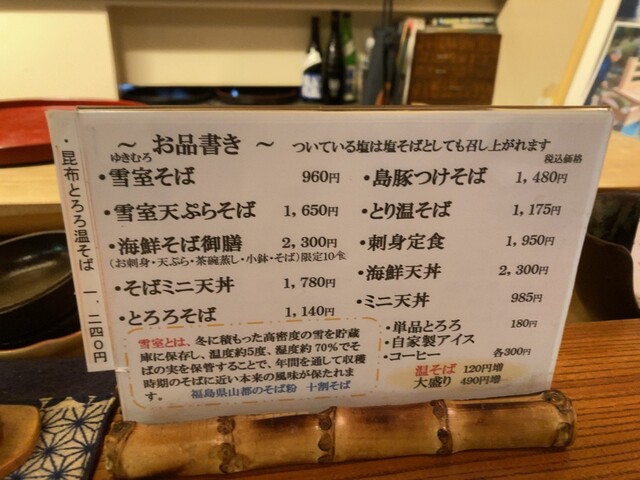 ・昆布とろろ温そば 一、二四〇円
～ お品書き ～ ついている塩は塩そばとしても召し上がれます
税込価格
ゆきむろ
・雪室そば 960円
・雪室天ぷらそば 1,650円
・海鮮そば御膳 2,300円
(お刺身・天ぷら・茶碗蒸し・小鉢・そば)限定10食
・そばミニ天丼 1,780円
・とろろそば 1,140円
・島豚つけそば 1,480円
・とり温そば 1,175円
・刺身定食 1,950円
・海鮮天丼 2,300円
・ミニ天丼 985円
・単品とろろ 180円
・自家製アイス
・コーヒー 各300円
温そば 120円増
大盛り 490円増
雪室とは、冬に積もった高密度の雪を貯蔵
庫に保存し、温度約5度、湿度約70％でそ
ばの実を保管することで、年間を通して収穫
時期のそばに近い本来の風味が保たれま
す。
福島県山都のそば粉 十割そば